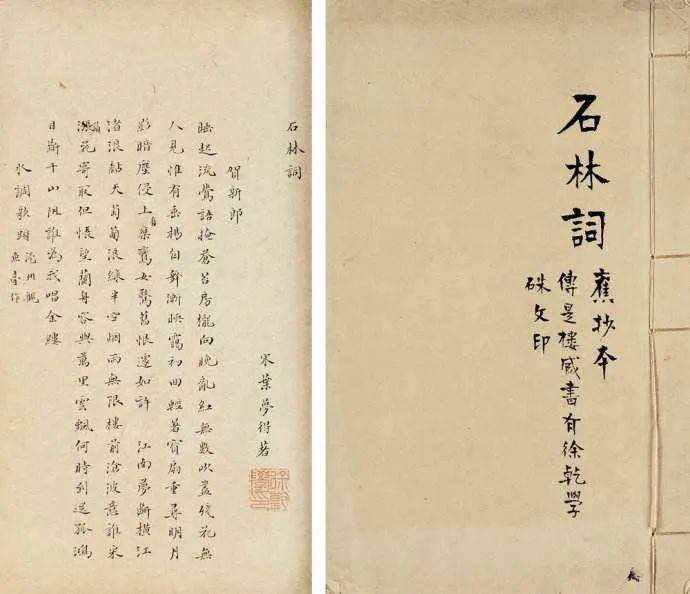 石林詞
舊抄本
傳是樓藏書有徐乾學
硃文印
石林詞
宋葉夢得著
賀新郎
睡起流鶯語掩蒼苔房櫳向晚亂紅無數吹盡殘花無
人見惟有垂楊自舞漸映靄初回輕著寶扇重尋明月
影暗塵侵上乘鸞女驚舊恨遽如許 江南夢斷橫江
渚浪黏天萄萄浪綠半空烟雨無限樓前滄波意誰采
蘋花寄取但悵望蘭舟容與萬里雲颿何時到送孤鴻
目斷千山阻誰為我唱金縷
水調歌頭 濠州觀
魚臺作